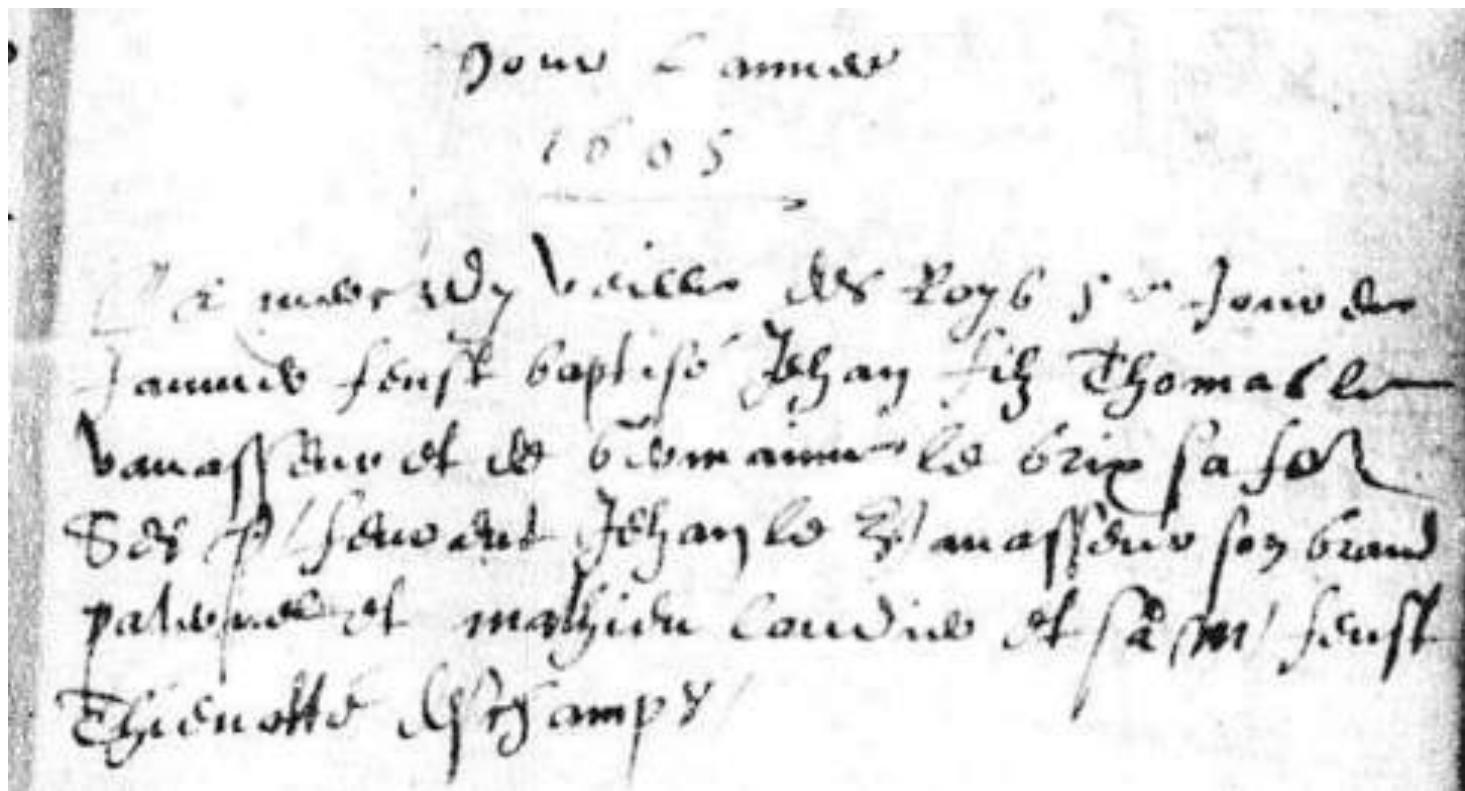 Pour l'annee
1605
Le mercredy veille des Roys 5me jour de
Janvier feust baptisé Jehan filz Thomas le
Vavasseur et de Germainne le brix sa fe
Ses p/ feurent Jehan le Vavasseur son grand
paternel et mathieu Landier et sa m/ feust
Thienotte deschamps